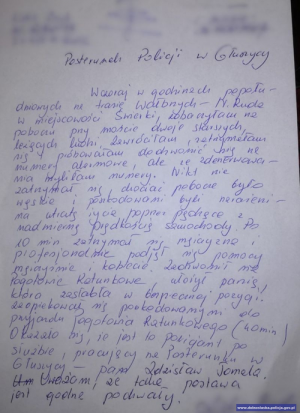 Posterunek Policji w Głuszycy
Wczoraj w godzinach popołu-
dniowych na trasie Wałbrzych - N. Ruda
w miejscowości zobaczyłam na
poboczu przy moście dwoje starszych,
leżących ludzi. zatrzymałam
się próbowałam dodzwonić się na
numery alarmowe, ale ze zdenerwowa-
nia myliłam numery. Nikt nie
zatrzymał się, chociaż pobocze było
wąskie i poszkodowani byli narażeni
na utratę życia poprzez pędzące z
nadmierną prędkością samochody. Po
10 min zatrzymał się mężczyzna i
profesjonalnie podjął się pomocy
mężczyźnie i kobiecie.
Pogotowie Ratunkowe, ułożył panią,
która zasłabła w bezpiecznej pozycji.
się poszkodowanymi do
przyjazdu Pogotowia Ratunkowego (40min)
Okazało się, że jest to policjant po
służbie, pracujący na Posterunku w
Głuszycy - pan Zdzisław
Uważam, że taka postawa
jest godna pochwały.
www.dolnoslaska.policja.gov.pl